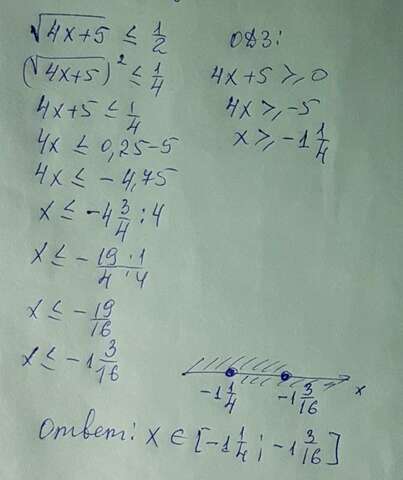 √4x+5 ≤ 1/2
(√4x+5)² ≤ 1/4
4x+5 ≤ 1/4
4x ≤ 0,25-5
4x ≤ -4,75
x ≤ -4 3/4 : 4
x ≤ - 19·1/4·4
x ≤ - 19/16
x ≤ -1 3/16
ОДЗ:
4x+5 ≥ 0
4x ≥ -5
x ≥ -1 1/4
-1 1/4 -1 3/16 x
Ответ: x ∈ [-1 1/4 ; -1 3/16]